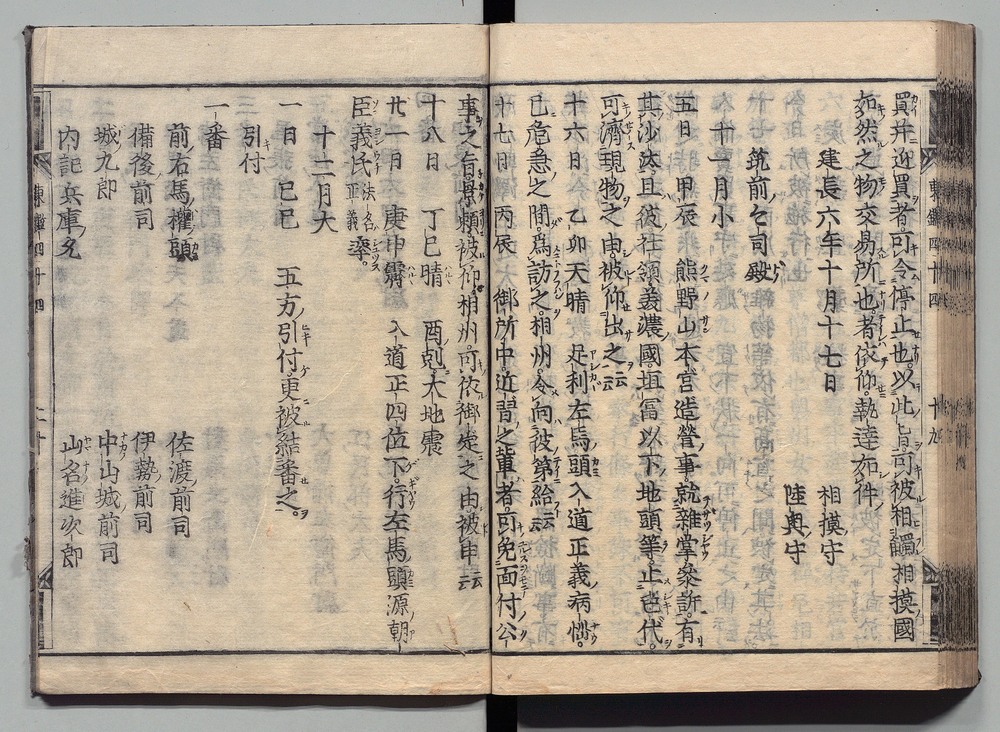 買并迎買者可令停止也以此旨可被相觸相摸國
如然之物交易所也者依仰執達如件
建長六年十月十七日 相摸守
陸奥守
筑前々司殿
十一月小
五日 甲辰 熊野山本宮造營事就雜掌參訴有
其沙汰且彼社領美濃國垣冨以下地頭等止色代
可濟現物之由被仰出之云云
十六日 乙卯天晴 足利左馬頭入道正義病惱
已危急之間爲訪之相州令向彼第給云云
十七日 丙辰 御所中近習之輩者可免面付公
事之旨 被仰相州可依御定之由被申云云
十八日 丁巳晴 酉剋大地震
廿一月 庚申霽 入道正四位下行左馬頭源朝
臣義氏法名正義卒
十二月大
一日 己巳 五方引付更被結番之
引付
一番
前右馬權頭 佐渡前司
備後前司 伊勢前司
城九郎 中山城前司
内記兵庫允 山名進次郎
東鑑四十四 十九
東鑑四十四 二十